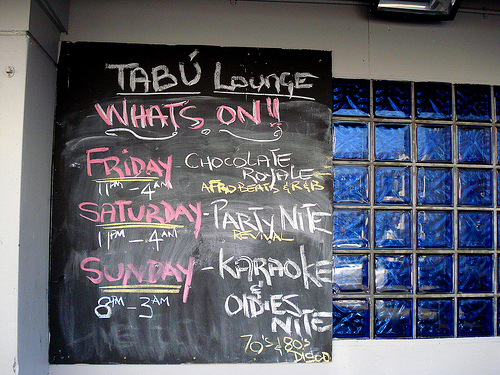 TABÚ LOUNGE
WHATS ON!!
FRIDAY CHOCOLATE
ROYALE
11PM - 4AM AFROBEATS & R&B
SATURDAY - PARTY NITE
11PM - 4AM REVIVAL
SUNDAY - KARAOKE
&
8PM - 3AM OLDIES
NITE
70's & 80's
DISCO